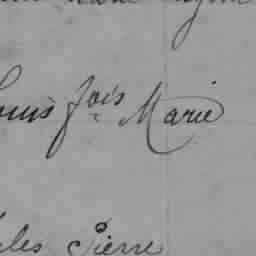 Louis fois Marie
Jules Pierre